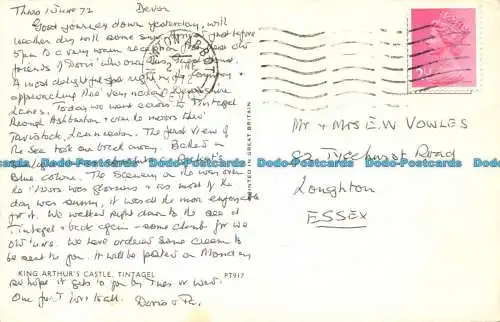 Thurs 1 June 72 Devon
Good journey down yesterday, with
weather dry with some sunny
5pm to a very warm reception from
friends of Doris' who own this
A most delightful spot right in the Country
approaching
Lanes. Today we went across to Tintagel
through Ashburton & over to moors
Tavistock, Launceston. The first view of
the Sea took our breath away.
Blue colour. The Scenery on the way over
the Moors was glorious & as most of the
day was sunny, it was all the more enjoyable
for it. We walked right down to the sea at
Tintagel & back again - some climb for we
old 'uns. We have ordered some cream to
be sent to you. It will be posted on Monday
KING ARTHUR'S CASTLE, TINTAGEL PT917
so hope it gets to you by Tues or Wed.
Our fond love to all.
Doris & Pa.
PRINTED IN GREAT BRITAIN
NEWTON ABBOT
Mr & Mrs E.W. VOWLES
82 Tycehurst Road
Loughton
ESSEX
Todo-Postcards Todo-Postcards Todo-Postcards Todo-Postcards